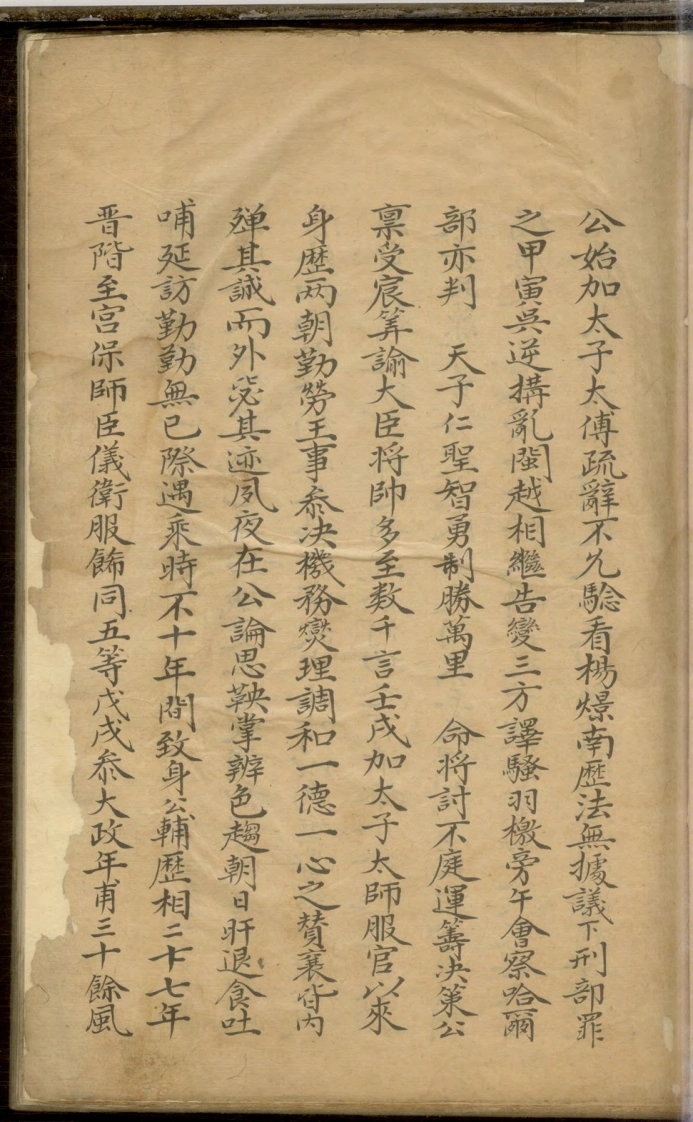 公始加太子太傅疏辭不允騐看楊燝南歷法無據議下刑部罪
之甲寅吳逆搆亂閩越相繼告變三方譯騷羽檄旁午會察哈爾
部亦判　天子仁聖智勇制勝萬里　命將討不庭運籌决策公
禀受宸筭諭大臣将帥多至数千言壬戌加太子太師服官以來
身歴两朝勤勞王事叅决機務爕理調和一德一心之賛襄皆内
殫其誠而外宓其迹夙夜在公論思鞅掌辨色趨朝日旰退食吐
哺延訪勤勤無已際遇乘時不十年間致身公輔歷相二十七年
晋階至宮保師臣儀衛服餙同五等戊戌叅大政年甫三十餘風